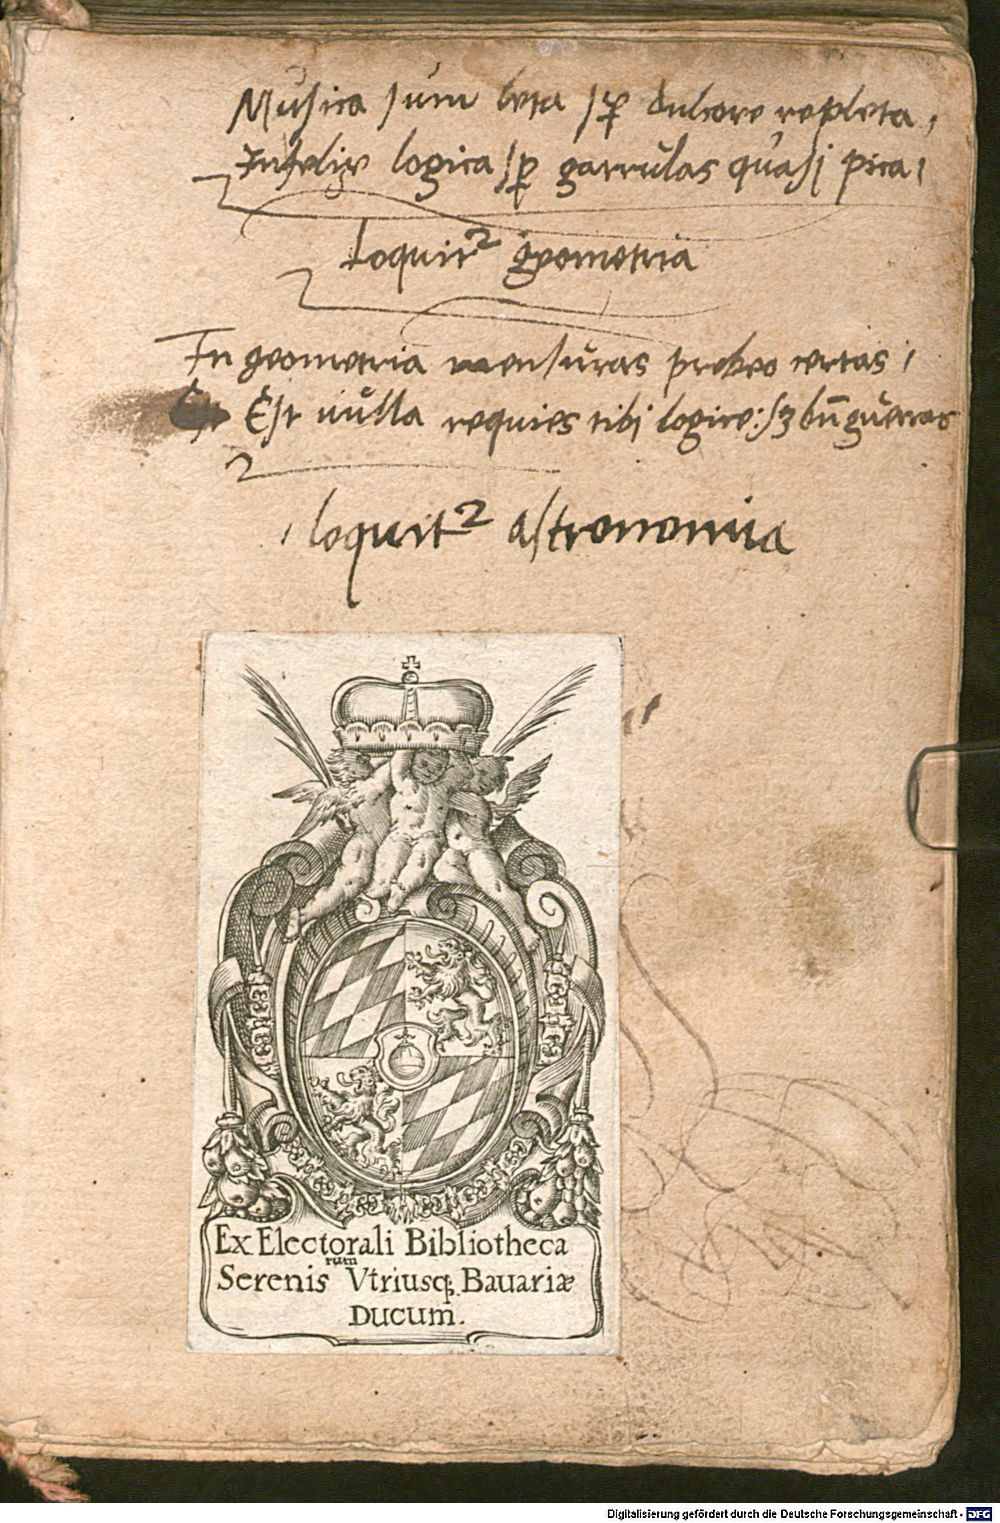 Musica sum leta sꝑ dulcore repleta,
Infelix logica sꝑ garrulas quasi pica,
Loquit² geometria
In geometria mensuras prebeo certas,
Est nulla requies tibi logice: sꝫ bñ guerras
loquit² astronomia
Ex Electorali Bibliotheca
Serenisrum Vtriusq; Bauariæ
Ducum̄.
Digitalisierung gefördert durch die Deutsche Forschungsgemeinschaft - DFG